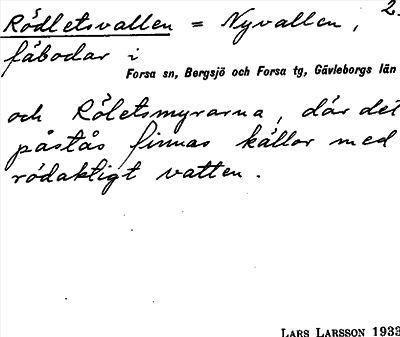 2.
Rödletsvallen = Nyvallen,
fäbodar i
Forsa sn, Bergsjö och Forsa tg, Gävleborgs län
och Röletsmyrarna, där det
påstås finnas källor med
rödaktigt vatten.
LARS LARSSON 1933